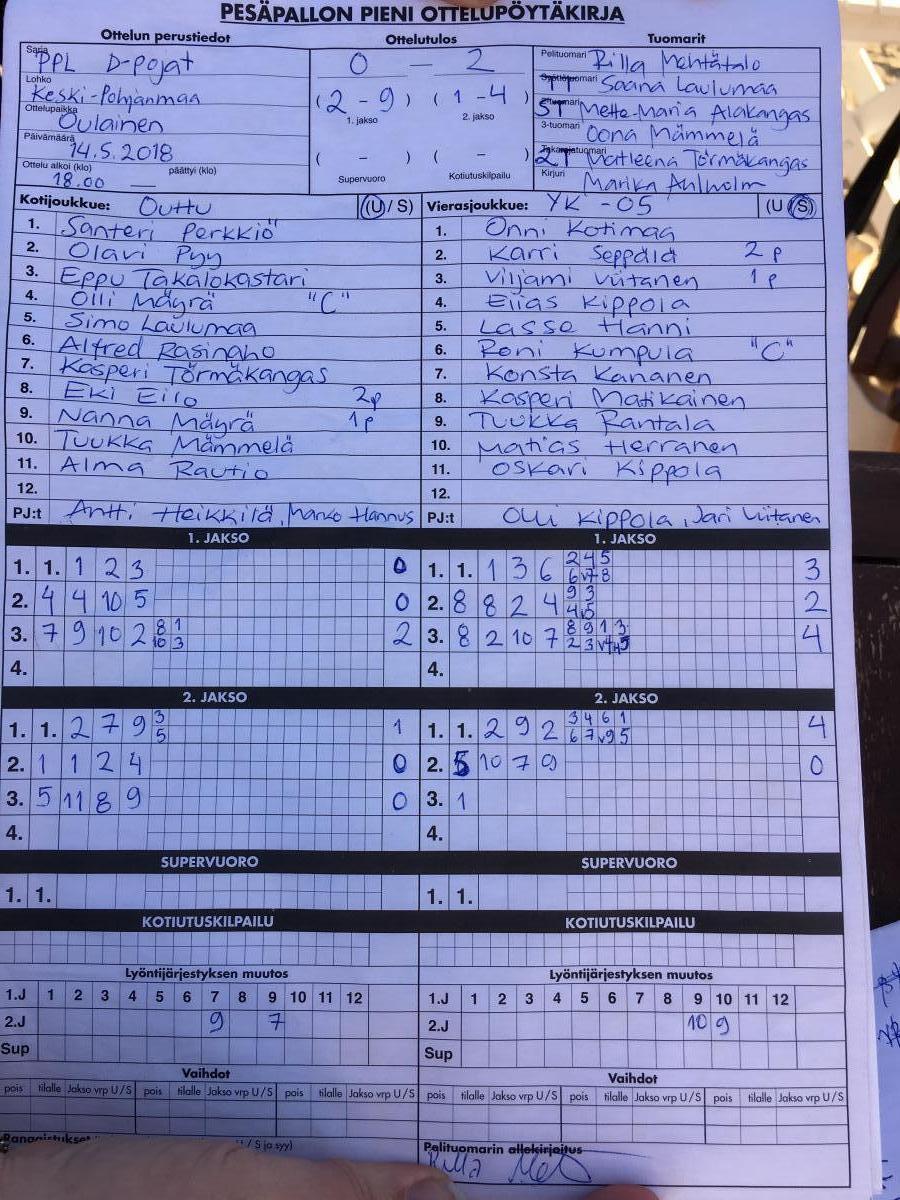 PESÄPALLON PIENI OTTELUPÖYTÄKIRJA
Ottelun perustiedot
Sarja PPL D-pojat
Lohko Keski-Pohjanmaa
Ottelupaikka Oulainen
Päivämäärä 14.5.2018
Ottelu alkoi (klo) päättyi (klo)
18.00 —
Ottelutulos
0 — 2
(2 - 9) (1 - 4)
1. jakso 2. jakso
( - ) ( - )
Supervuoro Kotiutuskilpailu
Tuomarit
Pelituomari Rilla Mehtätalo
Saana Laulumaa
ST Mette-Maria Alakangas
3-tuomari Oona Mämmelä
2T Matleena Törmäkangas
Kirjuri Marika Ahlholm
Kotijoukkue: Outtu (U / S)
1. Santeri Perkkiö
2. Olavi Pyy
3. Eppu Takalokastari
4. Olli Mäyrä "C"
5. Simo Laulumaa
6. Alfred Rasinaho
7. Kasperi Törmäkangas
8. Eki Eilo 2p
9. Nanna Mäyrä 1p
10. Tuukka Mämmelä
11. Alma Rautio
12.
PJ:t Antti Heikkilä, Marko Hannus
Vierasjoukkue: YK -05 (U / S)
1. Onni Kotimaa
2. Karri Seppälä 2p
3. Viljami Viitanen 1p
4. Eljas Kippola
5. Lasse Hanni
6. Roni Kumpula "C"
7. Konsta Kananen
8. Kasperi Matikainen
9. Tuukka Rantala
10. Matias Herranen
11. Oskari Kippola
12.
PJ:t Olli Kippola, Jari Viitanen
1. JAKSO
1. 1. 1 2 3 0
2. 4 4 10 5 0
3. 7 9 10 2 8 1 10 3 2
4.
1. JAKSO
1. 1. 1 3 6 2 4 5 6 v7 8 3
2. 8 8 2 4 9 3 4 v5 2
3. 8 2 10 7 8 9 1 3 2 3 4
4.
2. JAKSO
1. 1. 2 7 9 3 5 1
2. 1 1 2 4 0
3. 5 11 8 9 0
4.
2. JAKSO
1. 1. 2 9 2 3 4 6 1 6 7 v9 5 4
2. 5 10 7 9 0
3. 1
4.
SUPERVUORO
1. 1.
SUPERVUORO
1. 1.
KOTIUTUSKILPAILU
KOTIUTUSKILPAILU
Lyöntijärjestyksen muutos
1.J 1 2 3 4 5 6 7 8 9 10 11 12
2.J 9 7
Sup
Lyöntijärjestyksen muutos
1.J 1 2 3 4 5 6 7 8 9 10 11 12
2.J 10 9
Sup
Vaihdot
pois tilalle Jakso vrp U/S pois tilalle Jakso vrp U/S pois tilalle Jakso vrp U/S
Vaihdot
pois tilalle Jakso vrp U/S pois tilalle Jakso vrp U/S pois tilalle Jakso vrp U/S
Rangaistukset / S ja syy)
Pelituomarin allekirjoitus